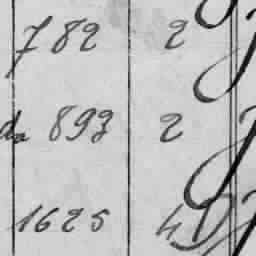 782 2
da 893 2
1625 4